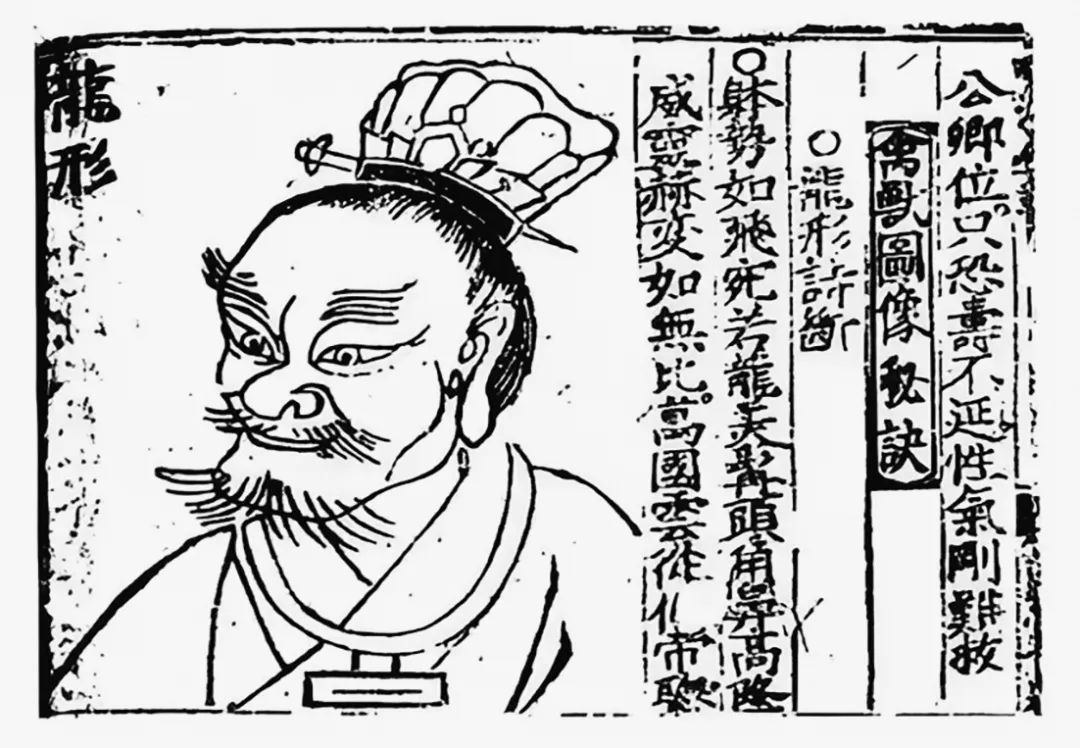 公卿位。只恐壽不延。性氣剛難救
禽獸圖像秘訣
○龍形 斷
○躰勢如飛宛若龍美髯頭角鼻高隆
威靈赫奕如無比。萬國雲從 帝聰
龍形